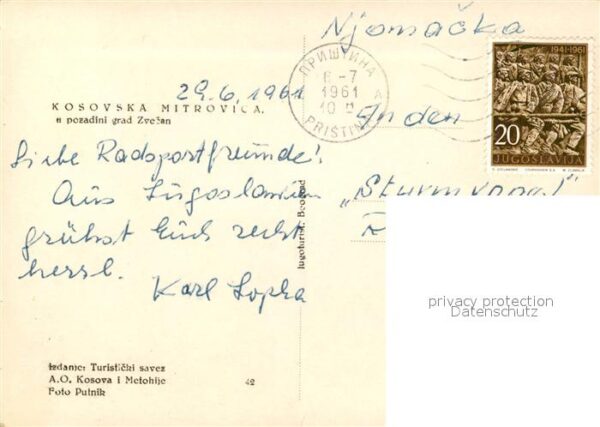 Njemačka
1941-1961
ПРИШТИНА
6-7
1961
10
A
PRIŠTINA
20
JUGOSLAVIJA
29.6.1961
KOSOVSKA MITROVICA.
u pozadini grad Zvečan
An den
Liebe Radsportfreunde!
Aus Jugoslawien
"Sturmvogel"
grüßt Euch recht
herzl.
Karl Lopka
R
Jugoturist, Beograd
privacy protection
Datenschutz
Izdame: Turistički savez
A.O. Kosova i Metohije
Foto Putnik
42